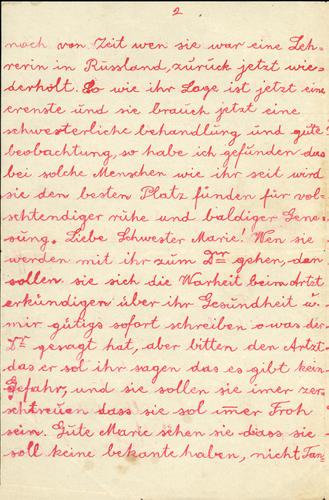 2
noch von Zeit wen sie war eine Leh-
rerin in Russland, zurück jetzt wie-
derholt. So wie ihr Lage ist jetzt eine
erenste und sie brauch jetzt eine
schwesterliche behandlung und güte
beobachtung, so habe ich gefünden das
bei solche Menschen wie ihr seit wird
sie den besten Platz fünden für vol-
schtendiger rühe und baldiger Gene-
sung. Liebe Schwester Marie! Wen sie
werden mit ihr zum Dr gehen, dan
sollen sie sich die Warheit beim Artzt
erkündigen über ihr Gesundheit ü.
mir gütigs sofort schreiben o was der
Dr gesagt hat, aber bitten den Artzt
das er sol ihr sagen das es gibt kein
Gefahr, und sie sollen sie imer zer-
schtreuen dass sie sol imer Froh
sein. Güte Marie sehen sie dass sie
soll keine bekante haben, nicht Tan-